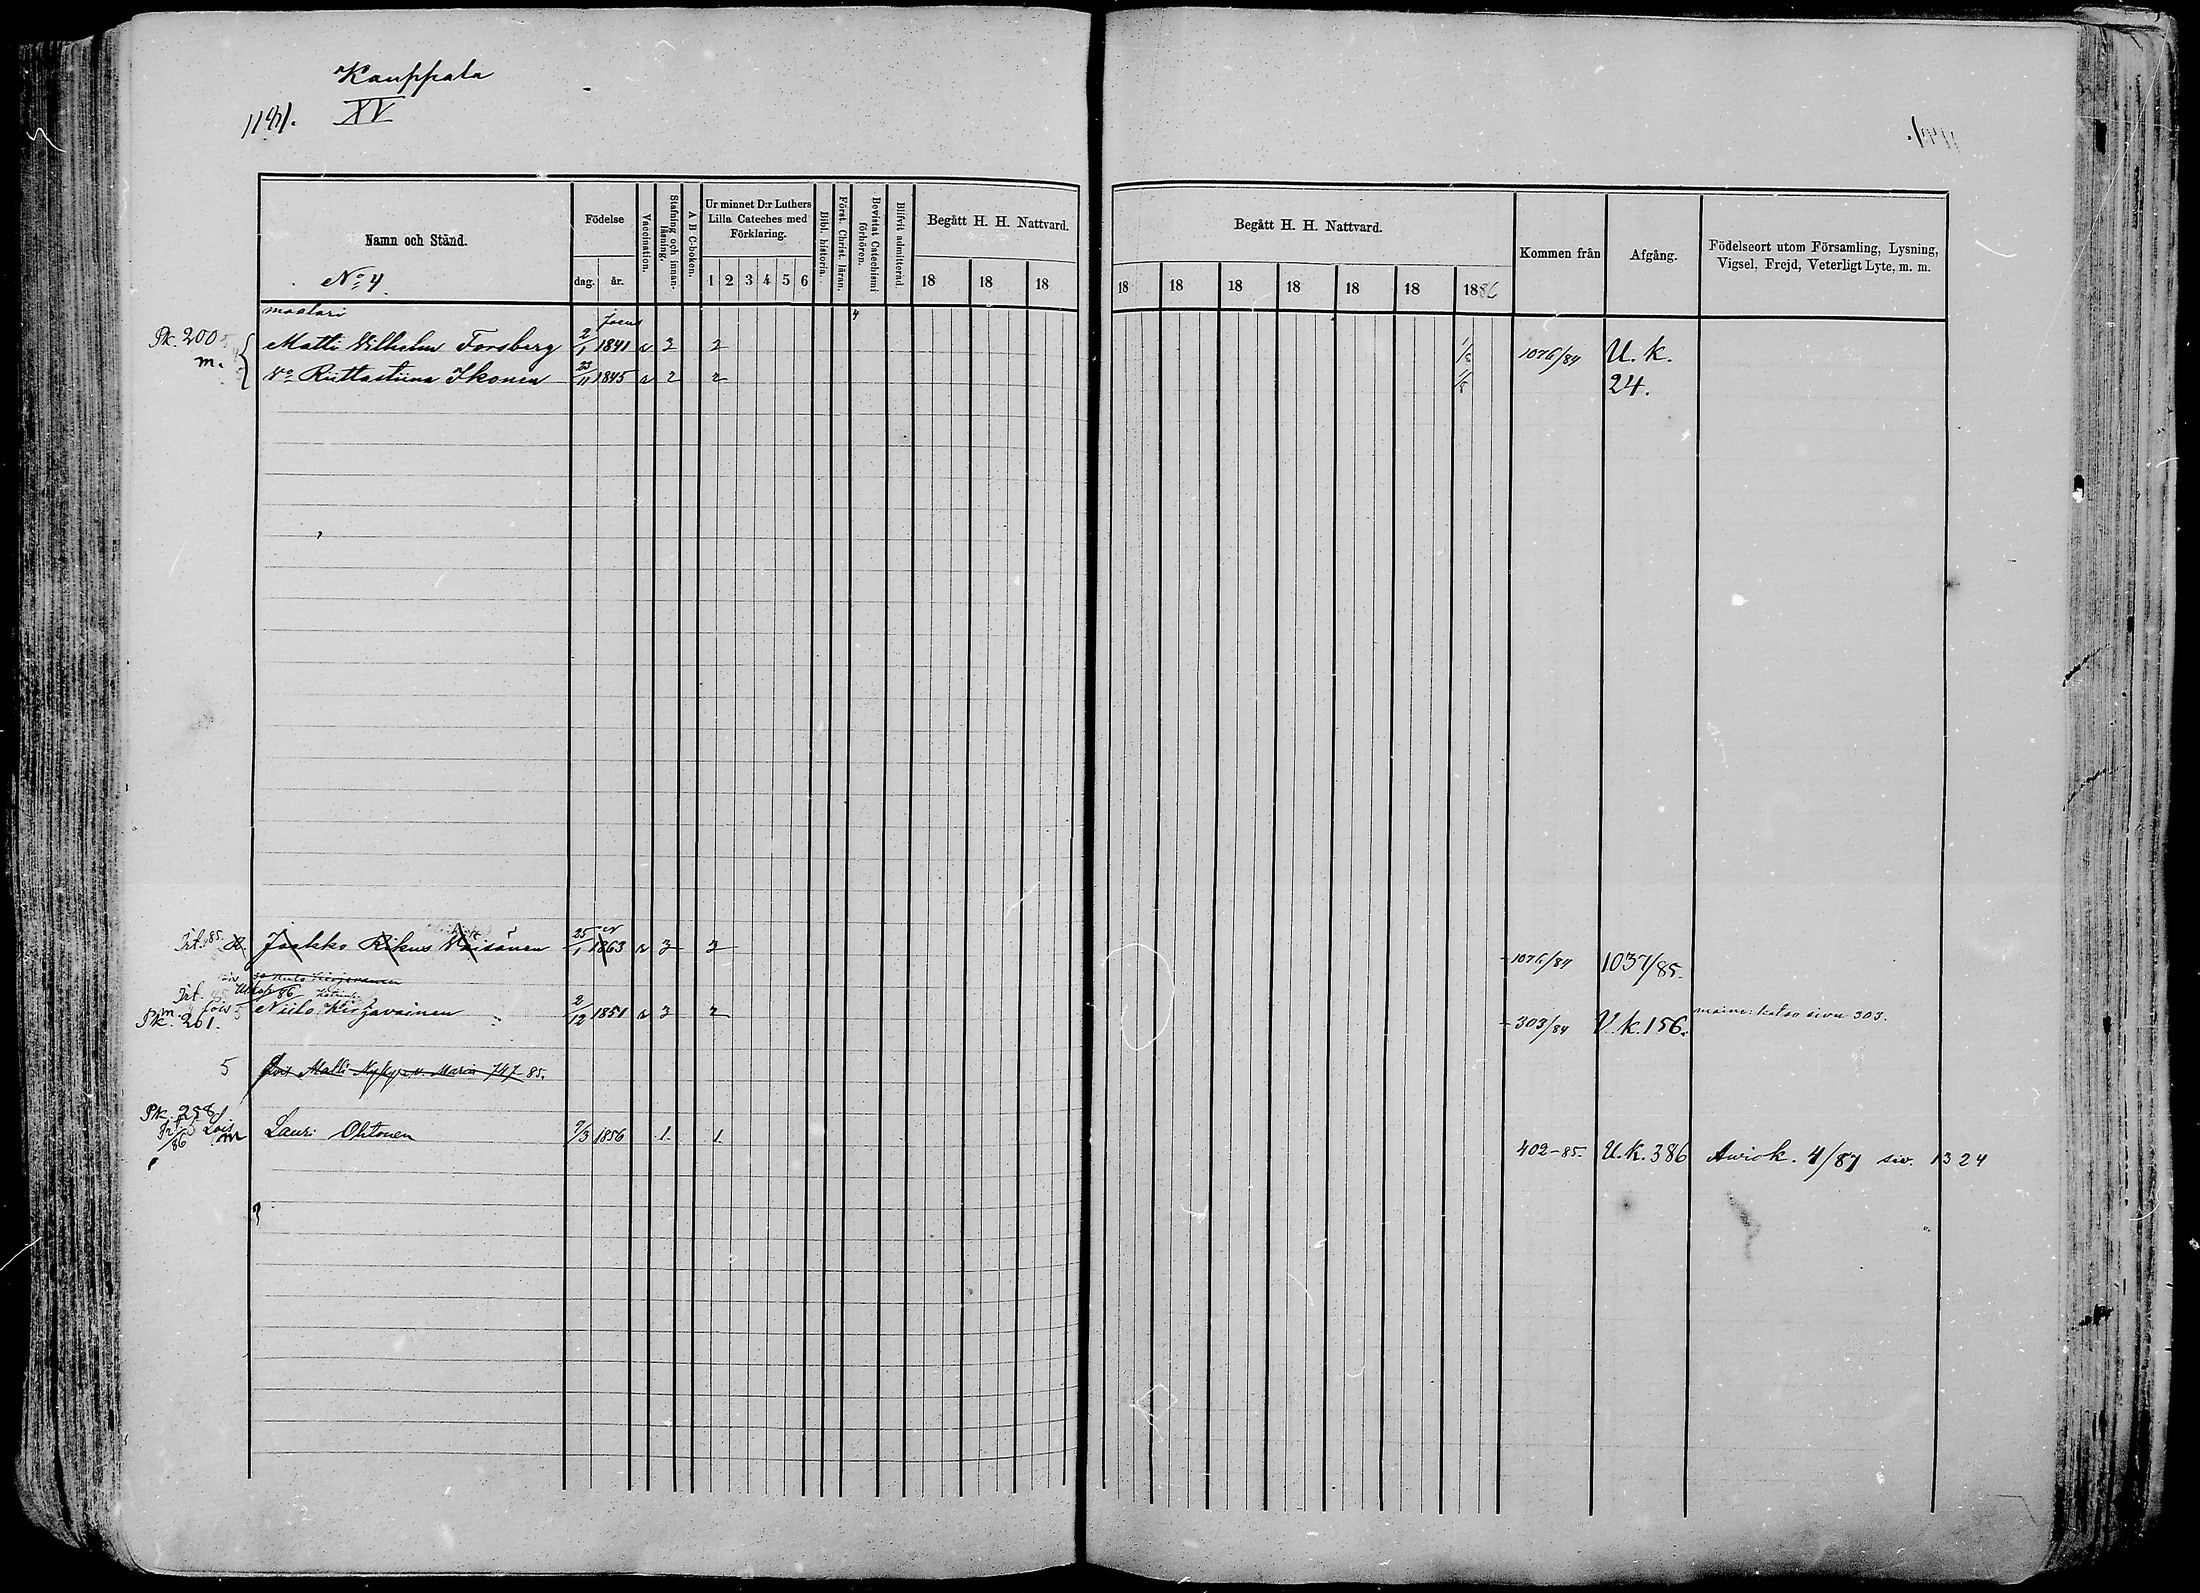 Kauppala
XV
1141.
Namn och Stånd.
No: 4
Födelse
dag. år.
Vaccination.
Stafning och innan-
läsning.
A B C-boken.
Ur minnet D:r Luthers
Lilla Cateches med
Förklaring.
1 2 3 4 5 6
Bibl. historia.
Först. Christ. läran.
Bevistat Catechismi
förhören.
Blifvit admitterad.
Begått H. H. Nattvard.
18 18 18
Begått H. H. Nattvard.
18 18 18 18 18 18 1886
Kommen från
Afgång.
Födelseort utom Församling, Lysning,
Vigsel, Frejd, Veterligt Lyte, m. m.
maalari
Pk. 200 Matti Vilhelm Forsberg 2/1 1841 v 3 2 1076/84 U. k.
m. Vo Riittastiina Ikonen 23/11 1845 v 2 2 24.
Irt. 85 Jaakko Rikus Väisänen 25/1 1863 v 3 2 1076/84 1037/85.
Irt. Ulkop 86
m. Lois Niilo Kirjavainen 2/12 1851 v 3 2 303/84 U. k. 156. katso sivu 303.
Pk. 201.
5 Lois Matti Nykyr v. Maria 747-85.
Pk. 258
Irt. Lois
/86 m Lauri Ohtonen 7/3 1856 1. 1. 402-85. U. k. 386 Aviok. 4/87 siv. 1324